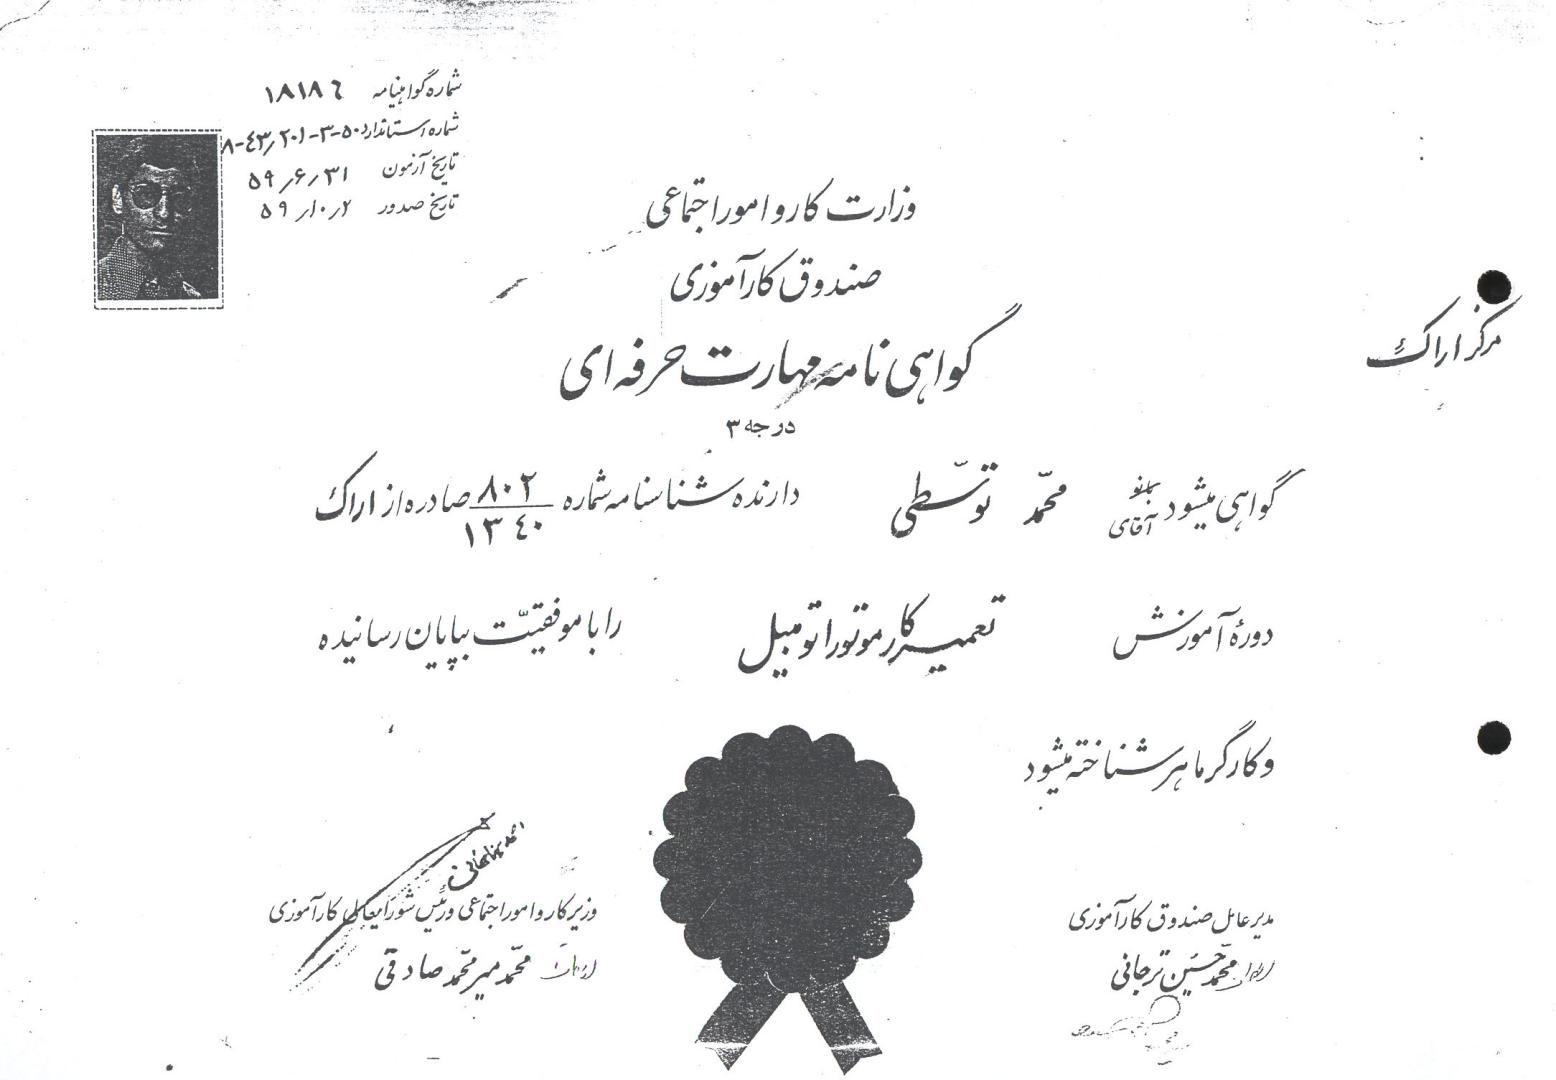 شماره گواهینامه ۱۸۱۸٦
شماره استاندارد ۸-٤۳٫۲۰۱-۳-۵۰
تاریخ آزمون ۵۹٫۶٫۳۱
تاریخ صدور ۵۹٫۱۰٫۲
وزارت کار و امور اجتماعی
صندوق کارآموزی
مرکز اراک
گواهی نامه مهارت حرفه ای
درجه ۳
گواهی میشود بانو آقای محمّد توسّطی دارنده شناسنامه شماره ۸۰۲ / ۱۳٤۰ صادره از اراک
دورهٔ آموزش تعمیرکار موتور اتومبیل را با موفقیّت بپایان رسانیده
و کارگر ماهر شناخته میشود
مدیر عامل صندوق کارآموزی
محمّد حسین ترجانی
وزیر کار و امور اجتماعی و رئیس شورایعالی کارآموزی
محمّد میر محمّد صادقی